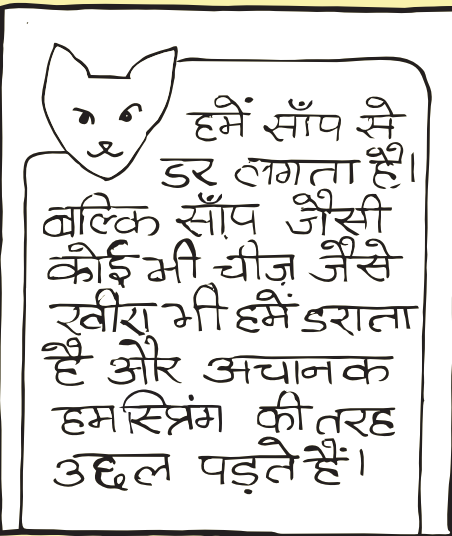 हमें साँप से
डर लगता है।
बल्कि साँप जैसी
कोई भी चीज़ जैसे
खीरा भी हमें डराता
है और अचानक
हम स्प्रिंग की तरह
उछल पड़ते हैं।